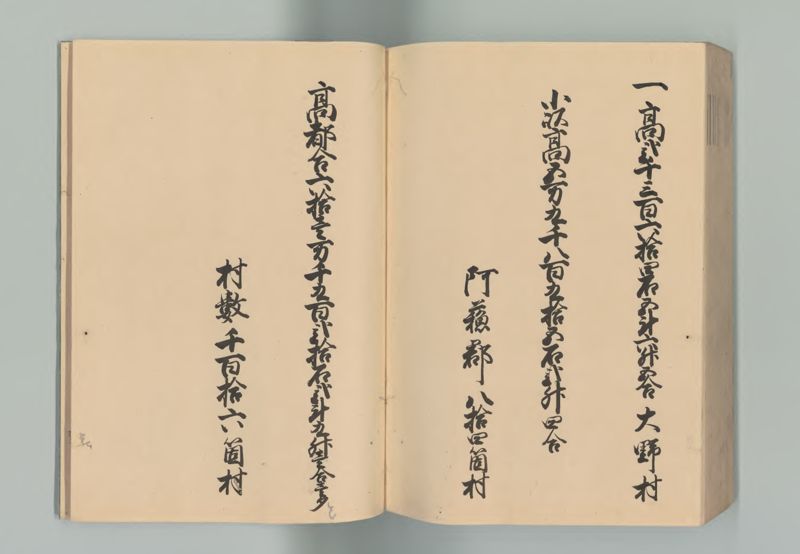 一高弐千三百六拾四石五斗六升五合 大野村
小以高五万九千八百五拾五石弐升四合
阿蘇郡 八拾四箇村
高都合六拾壱万千五百弐拾石弐斗九升壱合余
村數 千百拾六箇村